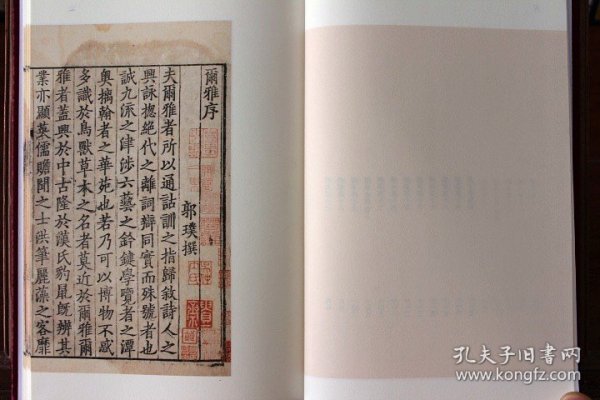 爾雅序
郭璞撰
夫爾雅者所以通詁訓之指歸敘詩人之
興詠揔絕代之離詞辯同實而殊號者也
誠九流之津涉六藝之鈐鍵學覽者之潭
奧摛翰者之華苑也若乃可以博物不惑
多識於鳥獸草木之名者莫近於爾雅爾
雅者蓋興於中古隆於漢氏豹鼠既辨其
業亦顯英儒贍聞之士洪筆麗藻之客靡
孔夫子旧书网
www.kongfz.com